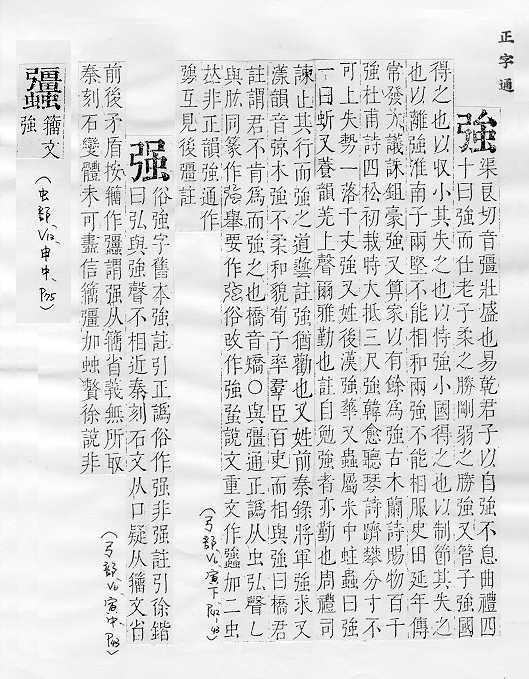 正字通
強
渠良切音彊壯盛也易乾君子以自強不息曲禮四
十曰強而仕老子柔之勝剛弱之勝強又管子強國
得之也以収小其失之也以恃強小國得之也以制節其失之
也以離強淮南子兩堅不能相和兩強不能相服史田延年傳
常發大議誅鉏豪強又算家以有餘為強古木蘭詩賜物百千
強杜甫詩四松初栽時大抵三尺強韓愈聽琴詩躋攀分寸不
可上失勢一落千丈強又姓後漢強華又蟲屬米中蛀蟲曰強
一曰蚚又養韻羌上聲爾雅勤也註自勉強者亦勤也周禮司
諫止其行而強之道藝註強猶勸也又姓前秦錄將軍強求又
漾韻音弶木強不柔和貌荀子率羣臣百吏而相與強曰橋君
註謂君不肯為而強之也橋音矯〇與彊通正譌从虫弘聲乚
與肱同篆作強舉要作強俗改作強蚩說文重文作䖑加二虫
𠀤非正韻強通作
彊互見後彊註
强
俗強字舊本強註引正譌俗作强非强註引徐鍇
曰弘與強聲不相近秦刻石文从口疑从籀文省
前後矛盾按籀作彊謂强从籀省義無所取
秦刻石變體未可盡信籀彊加䖵贅徐說非
𧖑
籀文
強
(弓部, V寅下, P42-43)
(弓部, V寅中, P43)
(虫部, V申中, P25)